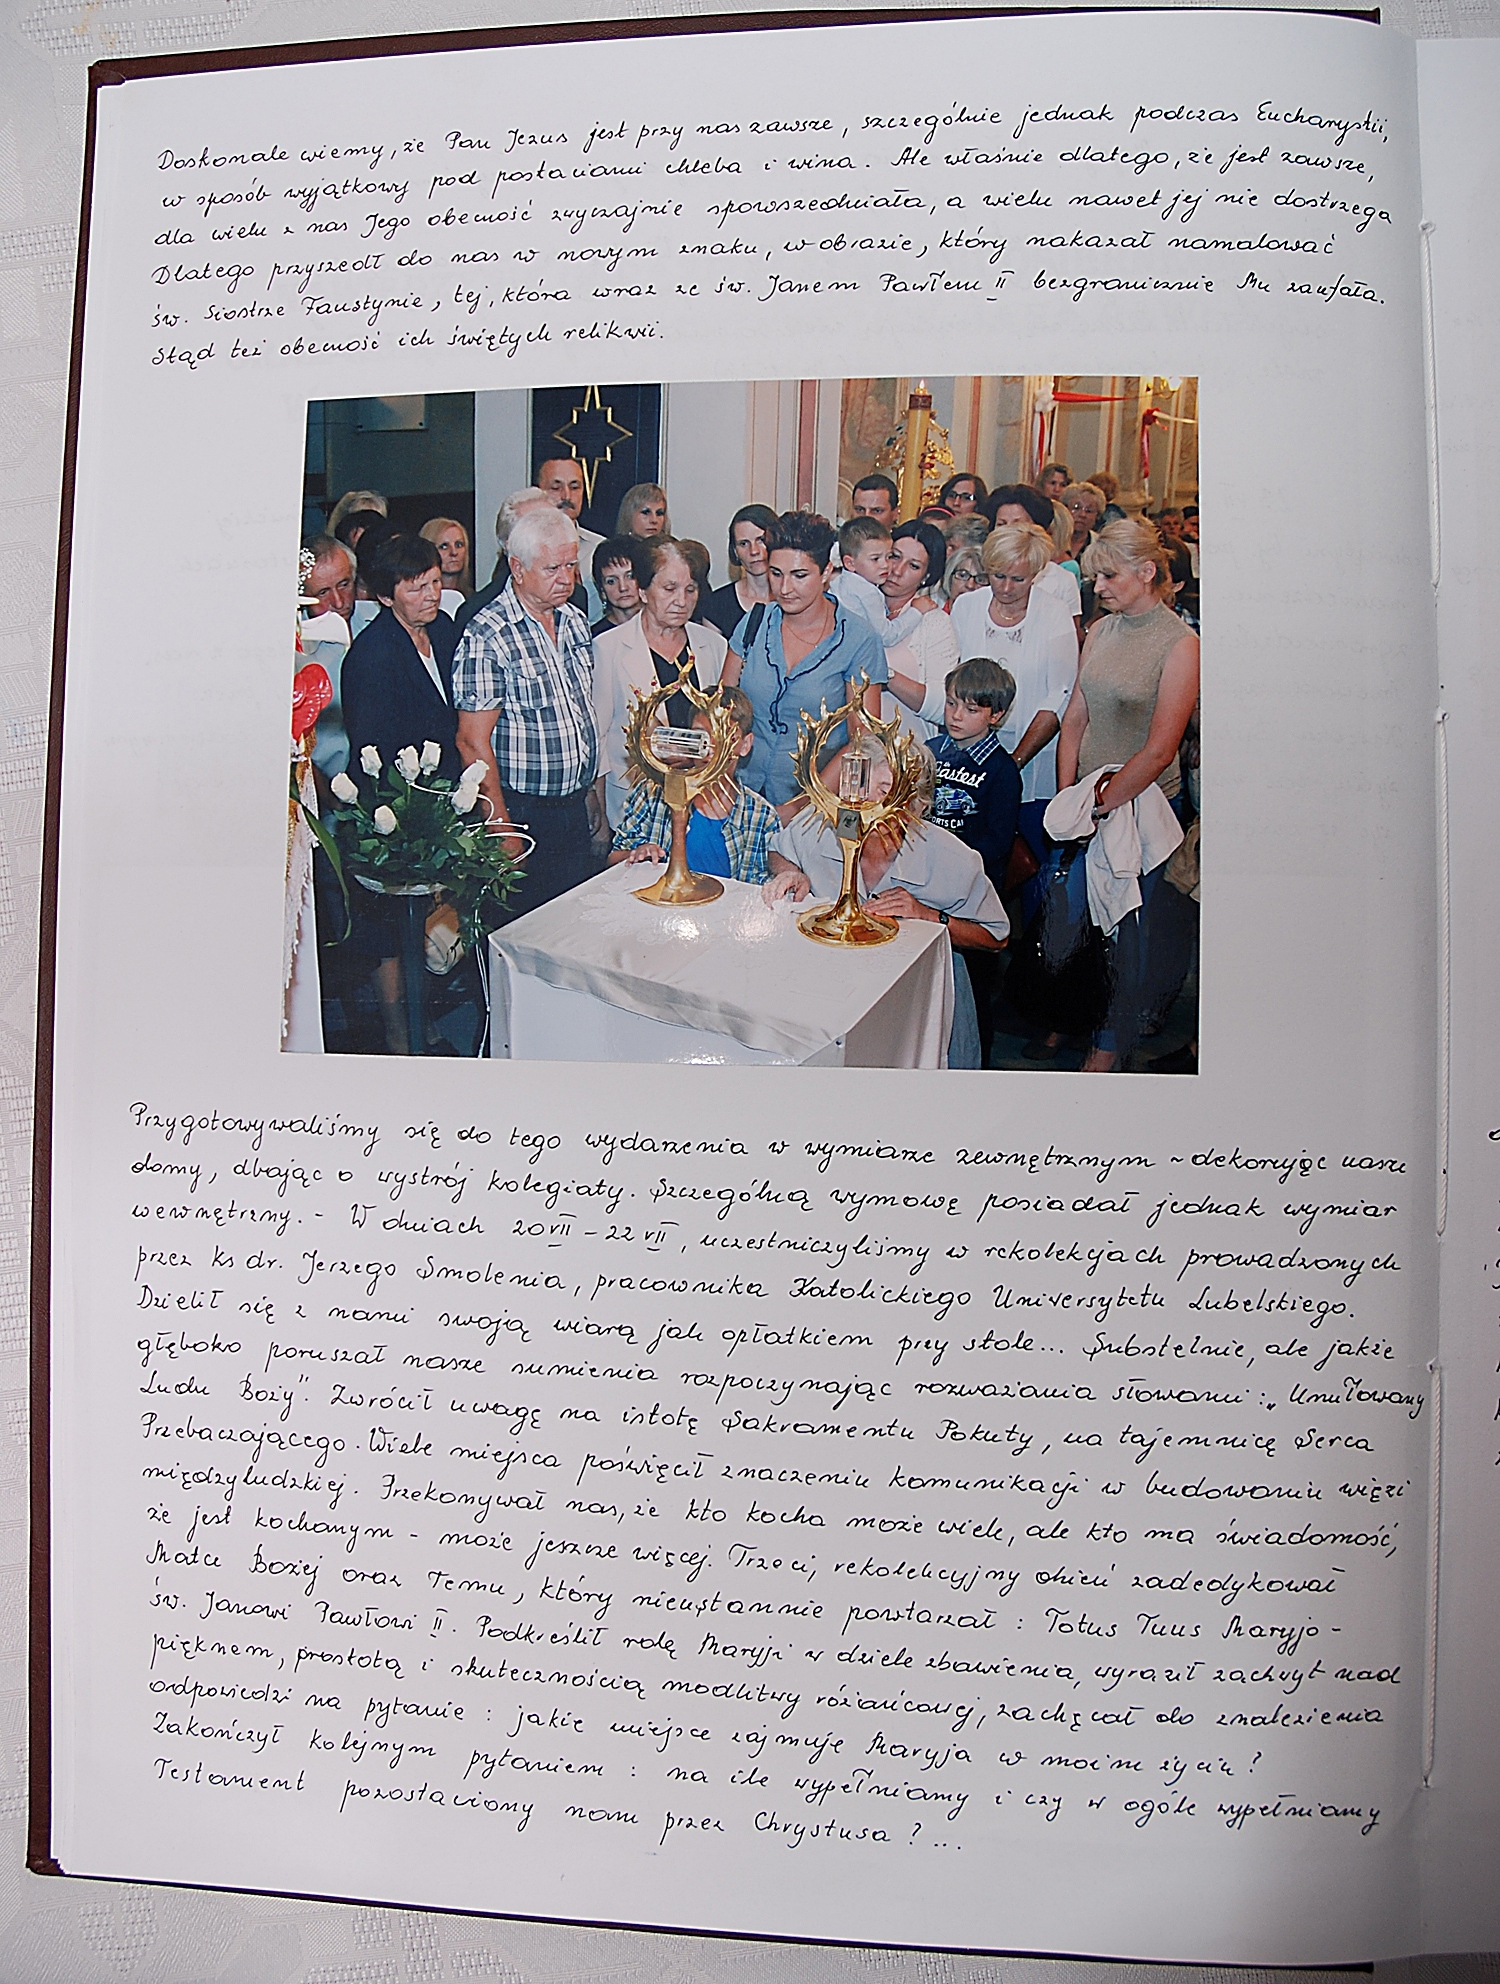 Doskonale wiemy, że Pan Jezus jest przy nas zawsze, szczególnie jednak podczas Eucharystii,
w sposób wyjątkowy pod postaciami chleba i wina. Ale właśnie dlatego, że jest zawsze,
dla wielu z nas Jego obecność zwyczajnie spowszedniała, a wielu nawet jej nie dostrzega
Dlatego przyszedł do nas w nowym znaku, w obrazie, który nakazał namalować
św. Siostrze Faustynie, tej, która wraz ze św. Janem Pawłem II bezgranicznie Mu zaufała.
Stąd też obecność ich świętych relikwii.
astest
PORTS CA
Przygotowywaliśmy się do tego wydarzenia w wymiarze zewnętrznym - dekorując nasze
domy, dbając o wystrój kolegiaty. Szczególną wymowę posiadał jednak wymiar
wewnętrzny. - W dniach 20 VII - 22 VII, uczestniczyliśmy w rekolekcjach prowadzonych
przez ks dr. Jerzego Smolenia, pracownika Katolickiego Uniwersytetu Lubelskiego.
Dzielił się z nami swoją wiarą jak opłatkiem przy stole... Subtelnie, ale jakże
głęboko poruszał nasze sumienia rozpoczynając rozważania słowami: „Umiłowany
Ludu Boży". Zwrócił uwagę na istotę Sakramentu Pokuty, na tajemnicę Serca
Przebaczającego. Wiele miejsca poświęcił znaczeniu komunikacji w budowaniu więzi
międzyludzkiej. Przekonywał nas, że kto kocha może wiele, ale kto ma świadomość,
że jest kochanym - może jeszcze więcej. Trzeci, rekolekcyjny dzień zadedykował
Matce Bożej oraz Temu, który nieustannie powtarzał: Totus Tuus Maryjo -
św. Janowi Pawłowi II. Podkreślił rolę Maryji w dziele zbawienia, wyraził zachwyt nad
pięknem, prostotą i skutecznością modlitwy różańcowej, zachęcał do znalezienia
odpowiedzi na pytanie: jakie miejsce zajmuje Maryja w moim życiu?
Zakończył kolejnym pytaniem: na ile wypełniamy i czy w ogóle wypełniamy
Testament pozostawiony nam przez Chrystusa? ...